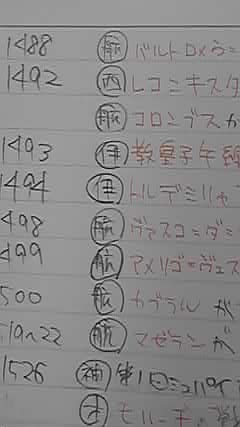 1488 航 バルトロメウ=
1492 西 レコンキスタ
航 コロンブスが
1493 伊 教皇子午線
1494 伊 トルデシリャ
498 航 ヴァスコ=ダ=
499 航 アメリゴ=ヴェス
500 航 カブラルが
19~22 航 マゼランが
1526 神 第1回シュパイ
オ モハーチの戦